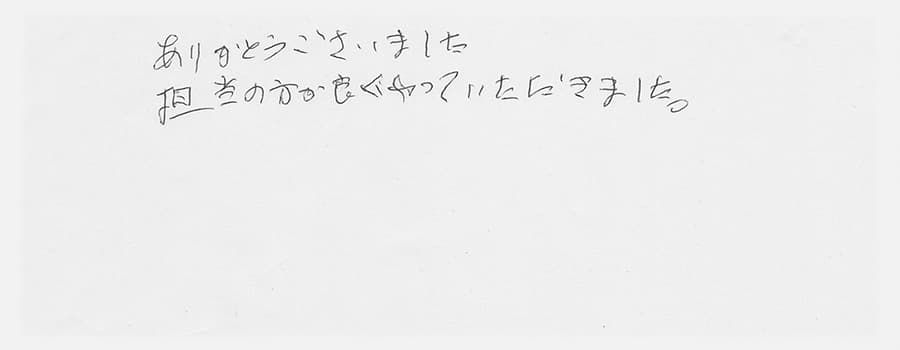 ありがとうございました
担当の方が良くやっていただきました。